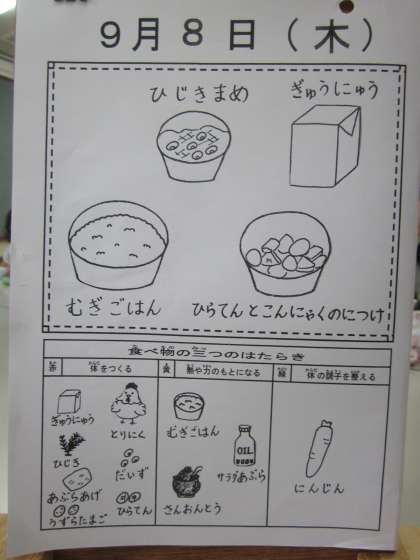 9月8日(木)
ひじきまめ
ぎゅうにゅう
むぎごはん
ひらてんとこんにゃくのにつけ
食べ物の三つのはたらき
赤 体をつくる
黄 熱や力のもとになる
緑 体の調子を整える
ぎゅうにゅう
とりにく
ひじき
だいず
あぶらあげ
うずらたまご
ひらてん
むぎごはん
OIL
サラダあぶら
さんおんとう
にんじん